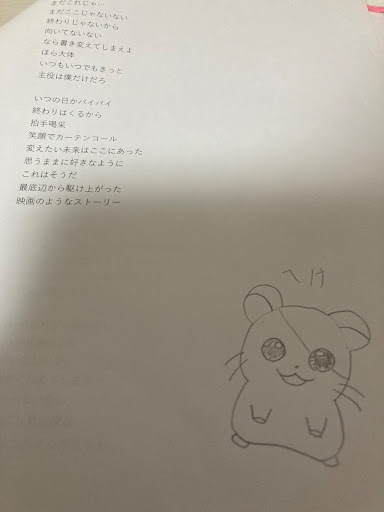 まだこれじゃ…
まだここじゃないない
終わりじゃないから
向いてないない
なら書き変えてしまえよ
ほら大体
いつもいつでもきっと
主役は僕だけだろ
いつの日かバイバイ
終わりはくるから
拍手喝采
笑顔でカーテンコール
変えたい未来はここにあった
思うままに好きなように
これはそうだ
最底辺から駆け上がった
映画のようなストーリー
へけ